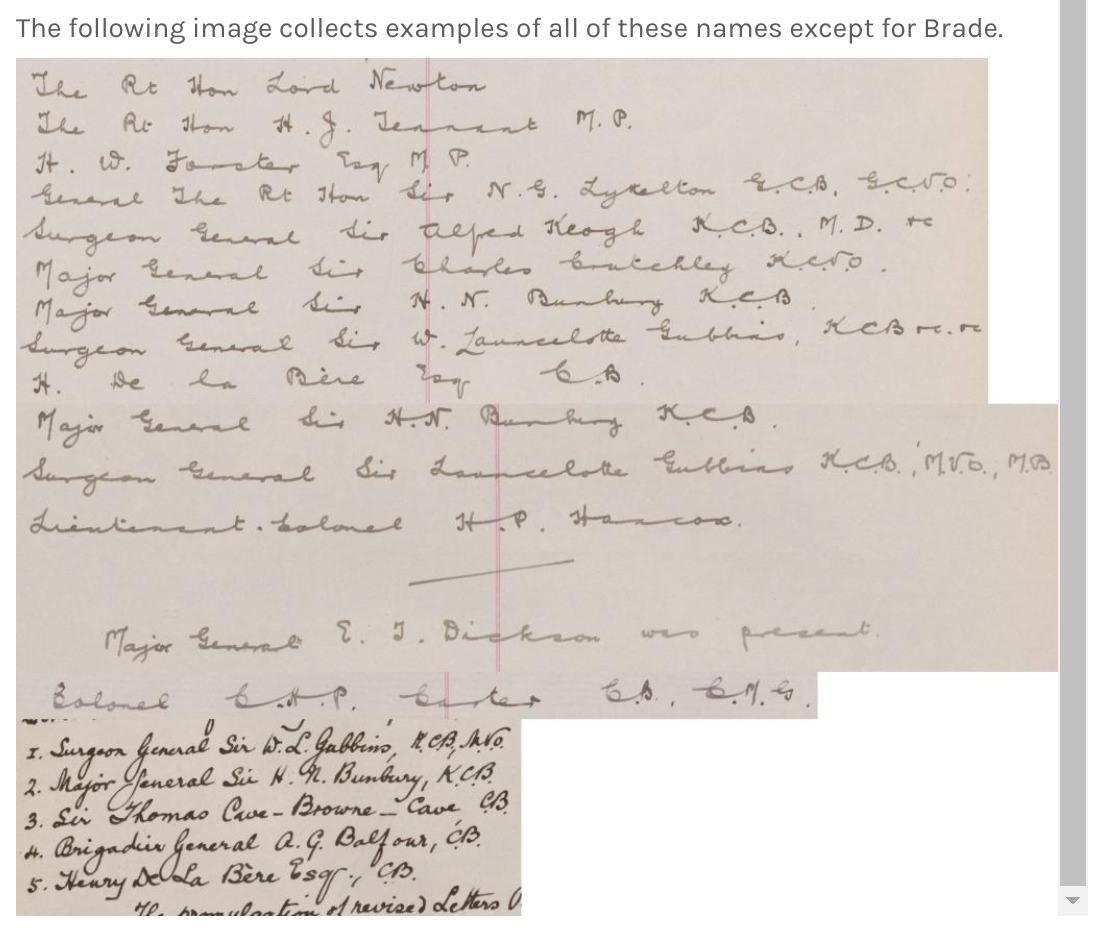 The following image collects examples of all of these names except for Brade.
The Rt Hon Lord Newton
The Rt Hon H. J. Tennant M. P.
H. W. Forster Esq M P.
General The Rt Hon Sir N. G. Lyttelton G.C.B, G.C.V.O.
Surgeon General Sir Alfred Keogh K.C.B., M. D. &c
Major General Sir Charles Crutchley K.C.V.O.
Major General Sir H. N. Bunbury K.C.B
Surgeon General Sir W. Launcelotte Gubbins, KCB &c. &c
H. De la Bère Esq C.B.
Major General Sir H.N. Bunbury K.C.B.
Surgeon General Sir Launcelotte Gubbins K.C.B., M.V.O., M.B.
Lieutenant. Colonel H.P. Hancox.
Major General E. T. Dickson was present.
Colonel C.H.P. Carter C.B., C.M.G.
1. Surgeon General Sir W. L. Gubbins, K.CB, M.V.O.
2. Major General Sir H. N. Bunbury, K.C.B.
3. Sir Thomas Cave-Browne-Cave CB
4. Brigadier General A. G. Balfour, C.B.
5. Henry De La Bère Esqr., CB.
The promulgation of revised Letters